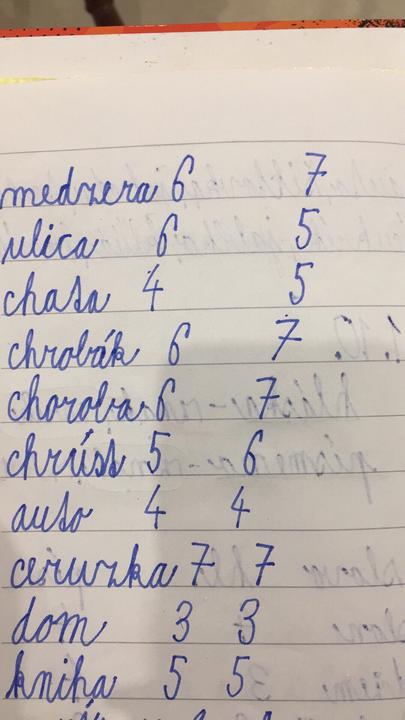 medzera 6 7
ulica 6 5
chata 4 5
chrobák 6 7
choroba 6 7
chrúst 5 6
auto 4 4
ceruzka 7 7
dom 3 3
kniha 5 5